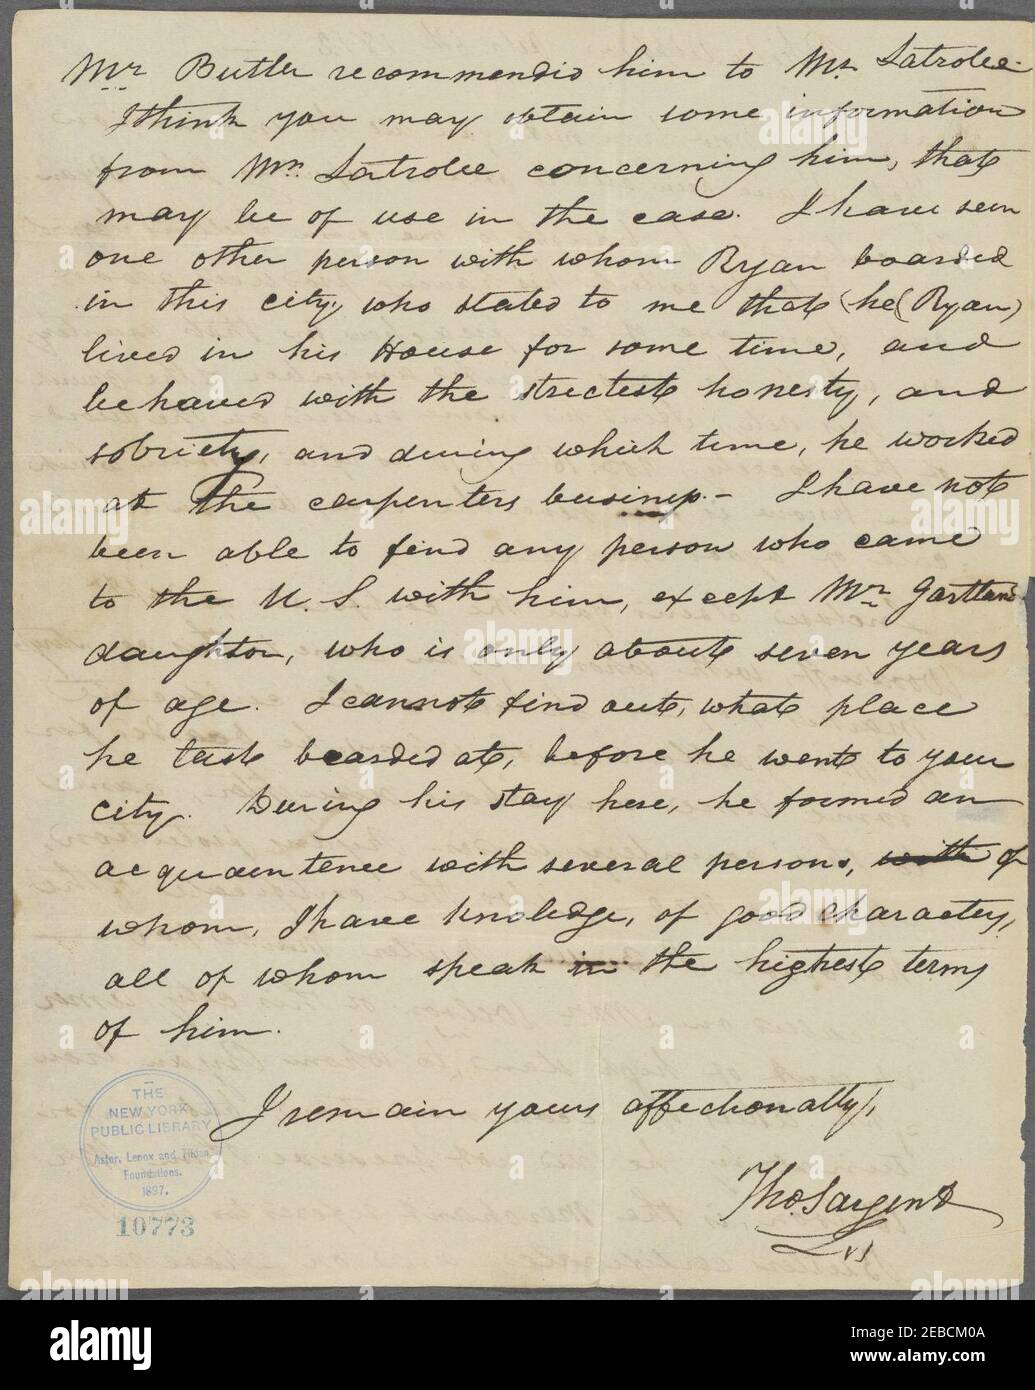 Mr Butler recommendid him to Mr Latrobe.
I think you may obtain some information
from Mr. Latrobe concerning him, that
may be of use in the case. I have seen
one other person with whom Ryan boarded
in this city, who stated to me that (he (Ryan)
lived in his House for some time, and
behaved with the strictest honesty, and
sobriety, and during which time, he worked
at the carpenters business.- I have not
been able to find any person who came
to the U. S. with him, except Mr
daughter, who is only about seven years
of age. I cannot find out, what place
he last boarded at, before he went to your
city. During his stay here, he formed an
acquaintence with several persons, with of
whom, I have knoledge, of good character,
all of whom speak in the highest terms
of him.
I remain yours affectionatly,
Tho. Sargent
THE
NEW YORK
PUBLIC LIBRARY
Astor, Lenox and Tilden
Foundations.
1897.
10773
alamy
Image ID: 2EBCM0A
www.alamy.com